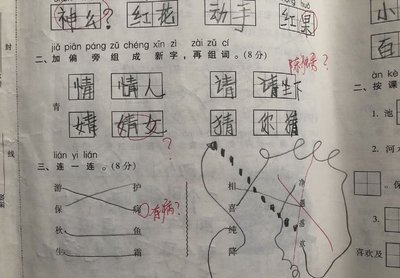 神么？ 红花 动手 红果
小
百
jiā piān páng zǔ chéng xīn zì zài zǔ cí
二、加偏旁组成新字，再组词。(8分)
情 情人 请 请坐下
青
婧 婧女 猜 你猜
？
lián yi lián
三、连一连。(8分)
游 护 相
保 病 有病？ 喜
秋 鱼 纯
生 霜 降
封
线
àn kè
二、按课
1. 池
2. 河水
3.
喜欢及